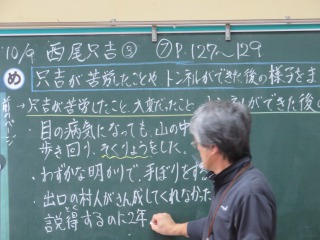 10/9 西尾只吉⑤ ⑦P.127〜129
め 只吉が苦労したことや トンネルができた後の様子をま
→只吉が苦労したこと、大変だったこと トンネルができた後の
・目の病気になっても、山の中
歩き回り、そくりょうをした。
・わずかな明かりで、手ぼりをす
・出口の村人がさん成してくれなかた
説得するのに2年
とく
前のページ